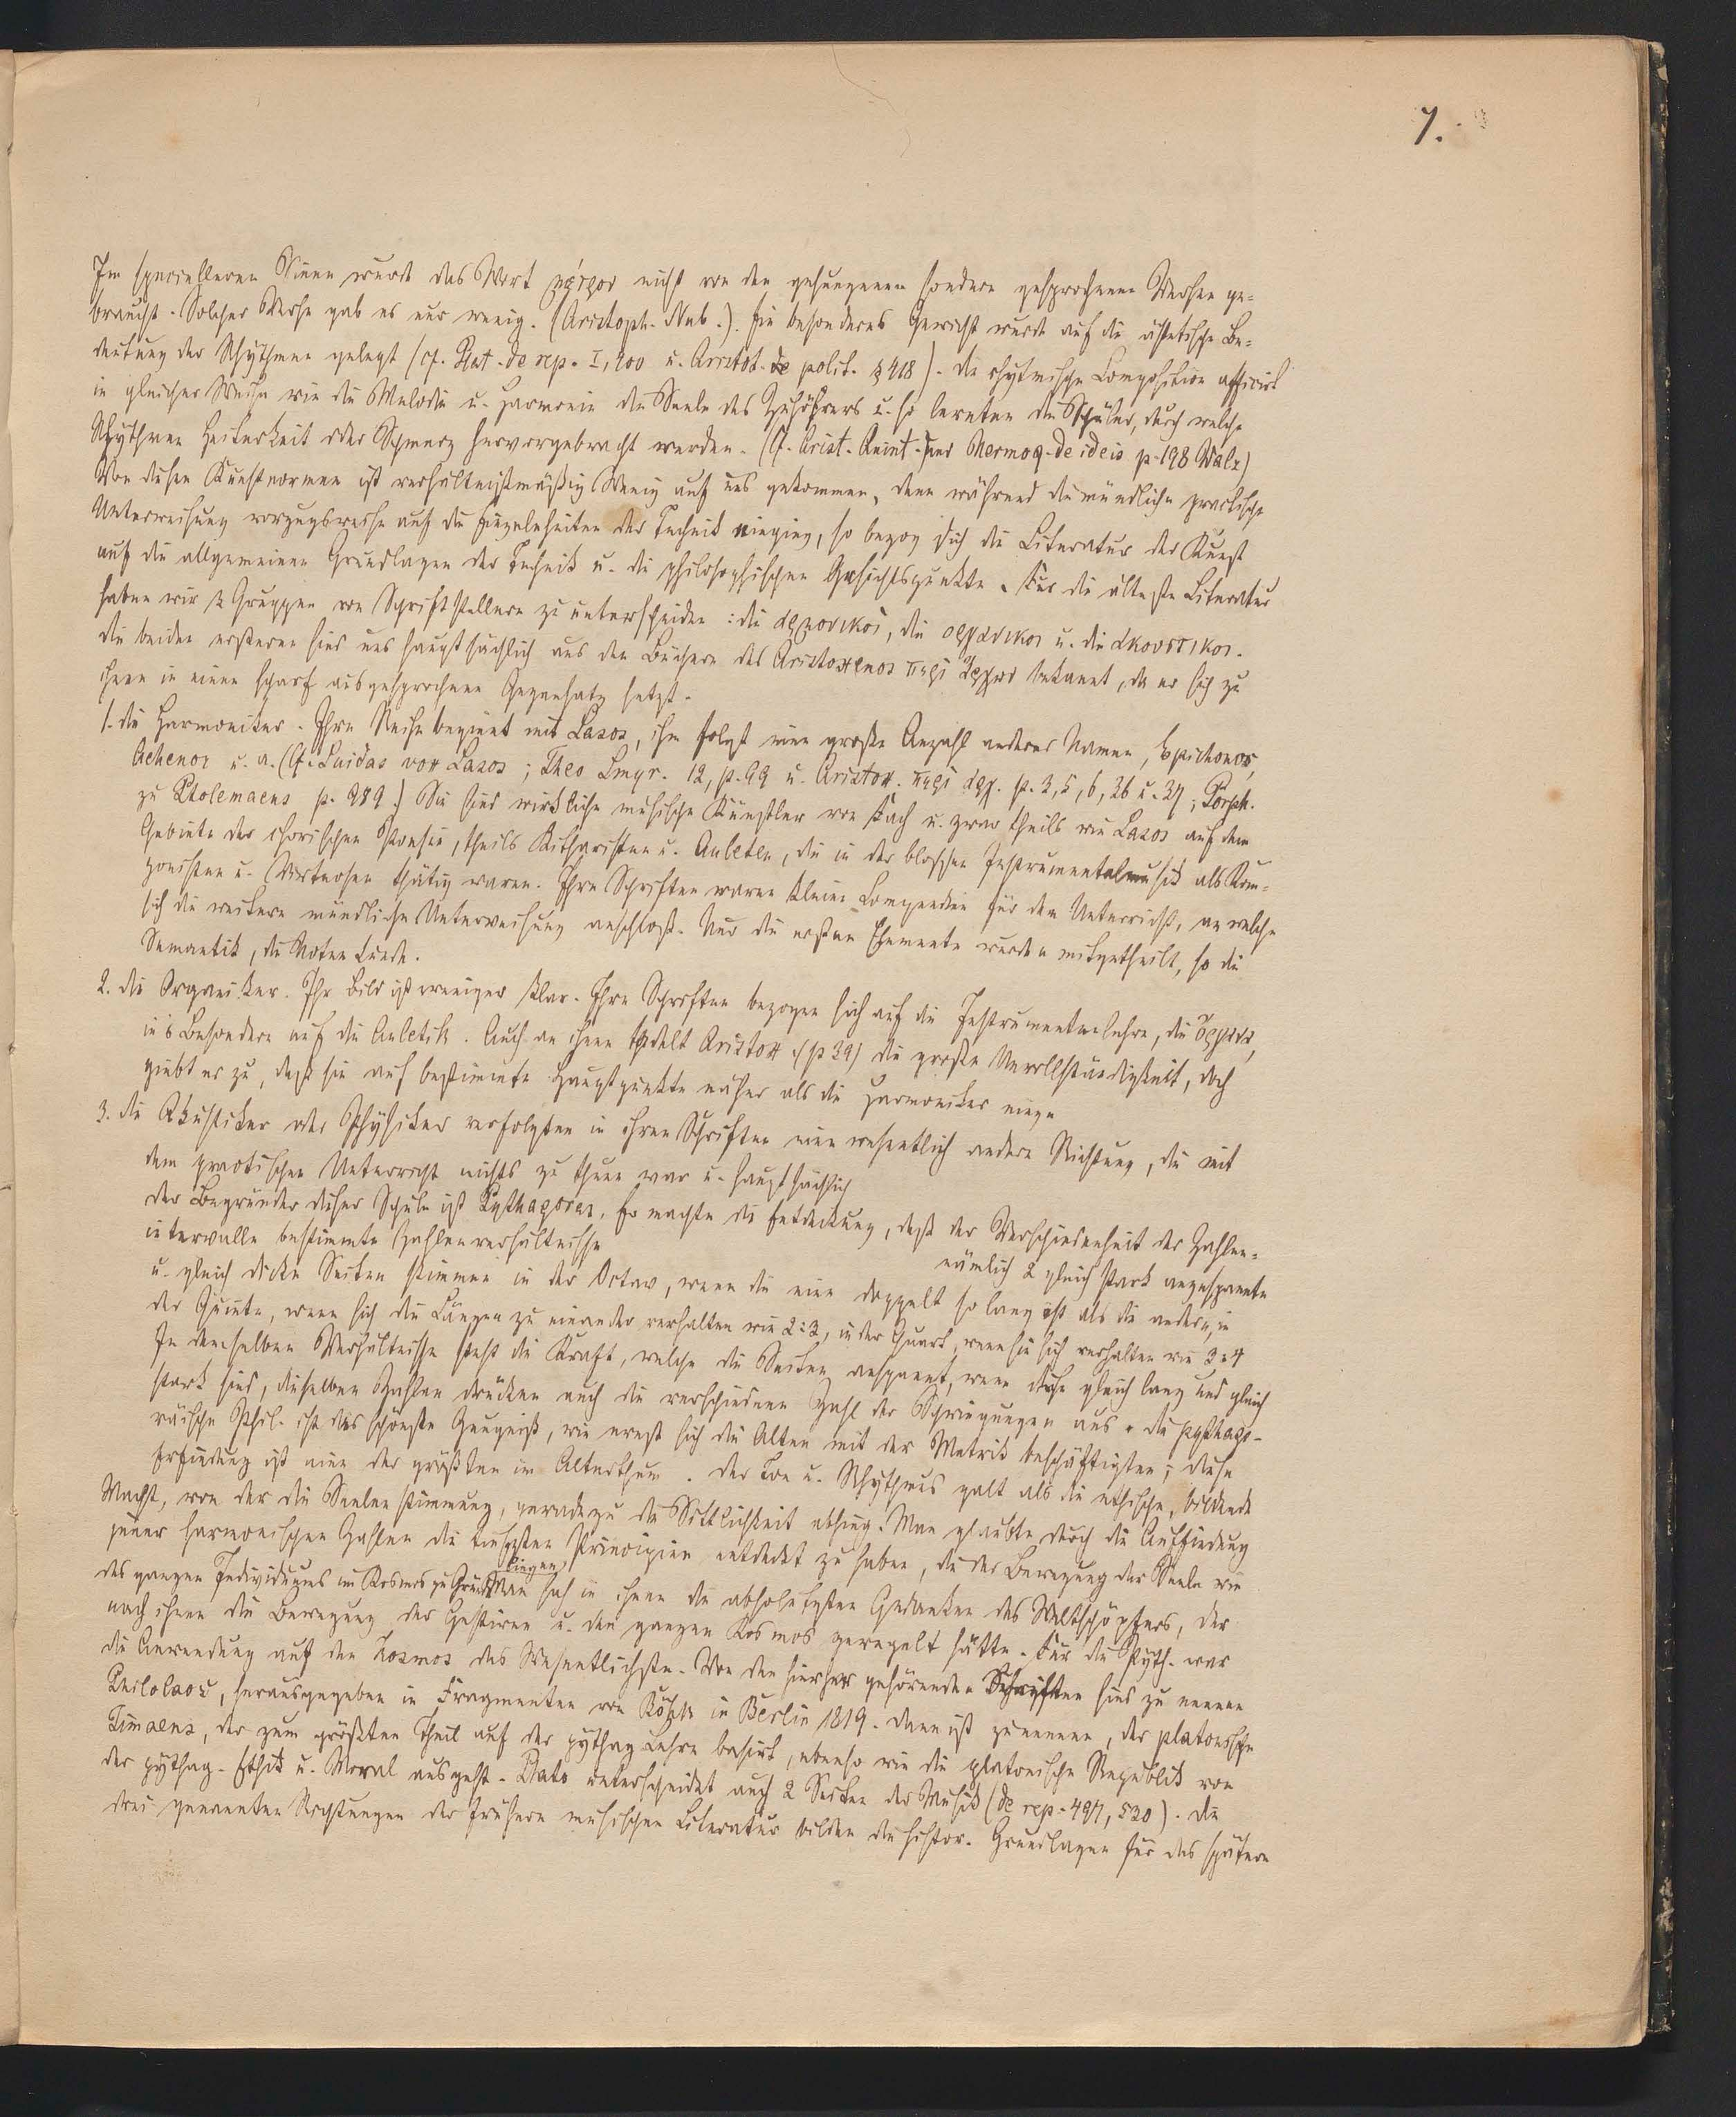 7.
Im specielleren Sinne wurde das Wort μέτρον nicht von den gesungenen sondern gesprochenen Versen ge-
braucht. Solcher Verse gab es nur wenig. (Aristoph. Nub.). Ein besonderes Gewicht wurde auf die ästhetische Be-
deutung der Rhythmen gelegt (cf. Plat. de rep. I, 400 u. Aristot. de polit. § 418). Die rhytmische Composition afficirt
in gleicher Weise wie die Melodie u. Harmonie die Seele des Zuhörers u. so lernten die Schüler, durch welche
Rhythmen Heiterkeit oder Schmerz hervorgebracht werden. (Cf. Arist. Quint. und Hermog. de ideis p. 198 Walz)
Von diesen Kunstnormen ist verhältnißmäßig Wenig auf uns gekommen, denn während die mündliche practische
Unterweisung vorzugsweise auf die Einzelnheiten der Technik einging, so bezog sich die Literatur der Kunst
auf die allgemeinen Grundlagen der Technik u. die philosophischen Gesichtspunkte. Für die älteste Literatur
haben wir 3 Gruppen von Schriftstellern zu unterscheiden: die ἁρμονικοὶ, die οργανικοι u. die ακουστικοι.
Die beiden ersteren sind uns hauptsächlich aus den Büchern des Aristoxenos περὶ ἀρχῶν bekannt, da er sich zu
ihnen in einen scharf ausgesprochenen Gegensatz setzt.
1. Die Harmoniker. Ihre Reihe beginnt mit Lasos, ihm folgt eine große Anzahl anderer Namen, Epigonos,
Achenor u. a. (Cf. Suidas vox Lasos; Theo Smyr. 12, p. 99 u. Aristox. περὶ ἀρχ. p. 3, 5, 6, 36 u. 37; Porph.
zu Ptolemaeus p. 189.) Sie sind wirkliche musische Künstler von Fach u. zwar theils wie Lasos auf dem
Gebiete der chorischen Poesie, theils Kitharisten u. Auleten, die in der bloßen Instrumentalmusik als Kom-
ponisten u. Virtuosen thätig waren. Ihre Schriften waren kleine Compendien für den Unterricht, an welche
sich die weitere mündliche Unterweisung anschloß. Nur die ersten Elemente wurden mitgetheilt, so die
Semantik, die Notenkunde.
2. Die Organiker. Ihr Bild ist weniger klar. Ihre Schriften bezogen sich auf die Instrumentenlehre, die ὄργανα,
in's Besondere auf die Auletik. Auch an ihnen tadelt Aristox. (p 39) die große Unvollständigkeit, doch
giebt er zu, daß sie auf bestimmte Hauptpunkte näher als die Harmoniker eingen
3. Die Akustiker oder Physiker verfolgten in ihren Schriften eine wesentlich andere Richtung, die mit
dem practischen Unterricht nichts zu thun war u. hauptsächlich
Der Begründer dieser Schule ist Pythagoras. Er machte die Entdeckung, daß der Verschiedenheit der Zahlen-
intervalle bestimmte Zahlenverhältnisse nämlich 2 gleich stark angespannte
u. gleich dicke Saiten stimmen in der Octav, wenn die eine doppelt so lang ist als die andere, in
der Quinte, wenn sich die Längen zu einander verhalten wie 2:3, in der Quart, wenn sie sich verhalten wie 3:4
In demselben Verhältnisse steht die Kraft, welche die Saiten anspannt, wenn diese gleich lang und gleich
stark sind, dieselben Zahlen drücken auch die verschiedene Zahl der Schwingungen aus. Die pythago-
räische Phil. ist das schönste Zeugniß, wie ernst sich die Alten mit der Metrik beschäftigten; diese
Erfindung ist eine der größten im Alterthum. Der Ton u. Rhythmus galt als die ethische, bildende
Macht, von der die Seelenstimmung, geradezu die Sittlichkeit abhing. Man glaubte durch die Auffindung
jener harmonischen Zahlen die tiefsten Principien entdeckt zu haben, die der Bewegung der Seele wie
des ganzen Individuums im Kosmos zu Grunde liegen. Man sah in ihnen die absolutesten Gedanken des Weltschöpfers, der
nach ihnen die Bewegung der Gestirne u. den ganzen Kosmos geregelt hätte. Für die Pyth. war
die Anwendung auf den Kosmos das Wesentlichste. Von den hierher gehörenden Schriften sind zu nennen
Philolaos, herausgegeben in Fragmenten von Böckh in Berlin 1819. Dann ist zu nennen, der platonische
Timaeus, der zum größten Theil auf der pythag Lehre basirt, ebenso wie die platonische Republik von
der pythag. Ethik u. Moral ausgeht. Plato unterscheidet auch 2 Seiten der Musik (de rep. 497, 530). Die
drei genannten Richtungen der frühern musischen Literatur bilden die histor. Grundlagen für das spätere